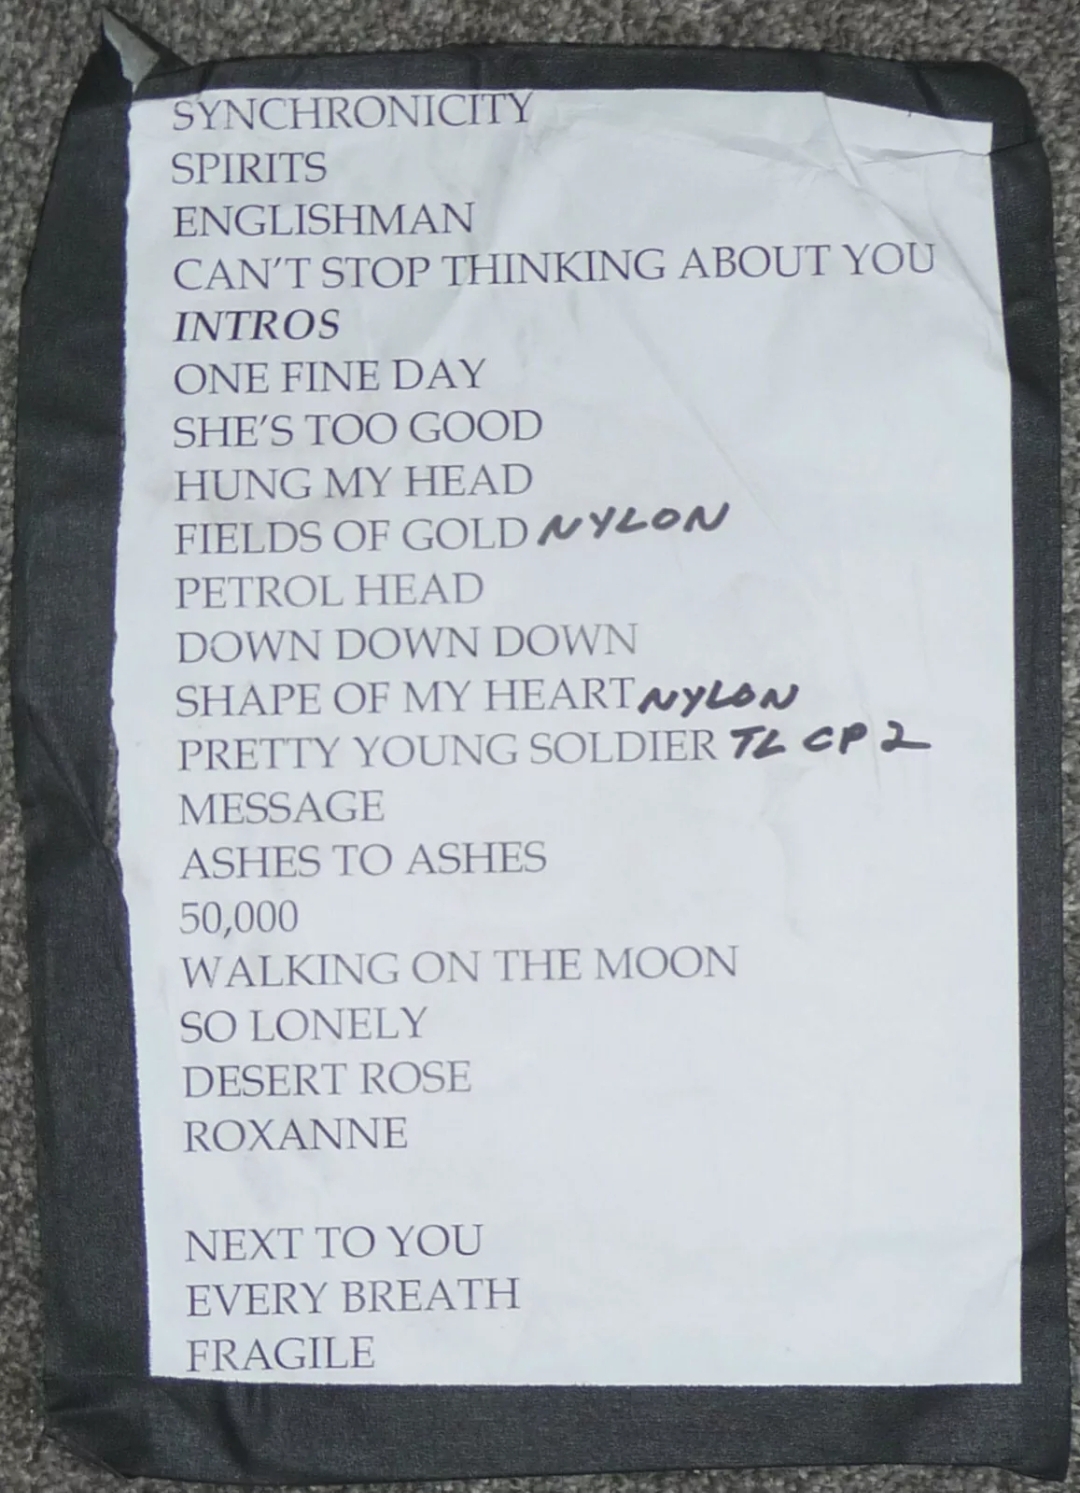 SYNCHRONICITY
SPIRITS
ENGLISHMAN
CAN'T STOP THINKING ABOUT YOU
INTROS
ONE FINE DAY
SHE'S TOO GOOD
HUNG MY HEAD
FIELDS OF GOLD NYLON
PETROL HEAD
DOWN DOWN DOWN
SHAPE OF MY HEART NYLON
PRETTY YOUNG SOLDIER TL CP 2
MESSAGE
ASHES TO ASHES
50,000
WALKING ON THE MOON
SO LONELY
DESERT ROSE
ROXANNE
NEXT TO YOU
EVERY BREATH
FRAGILE